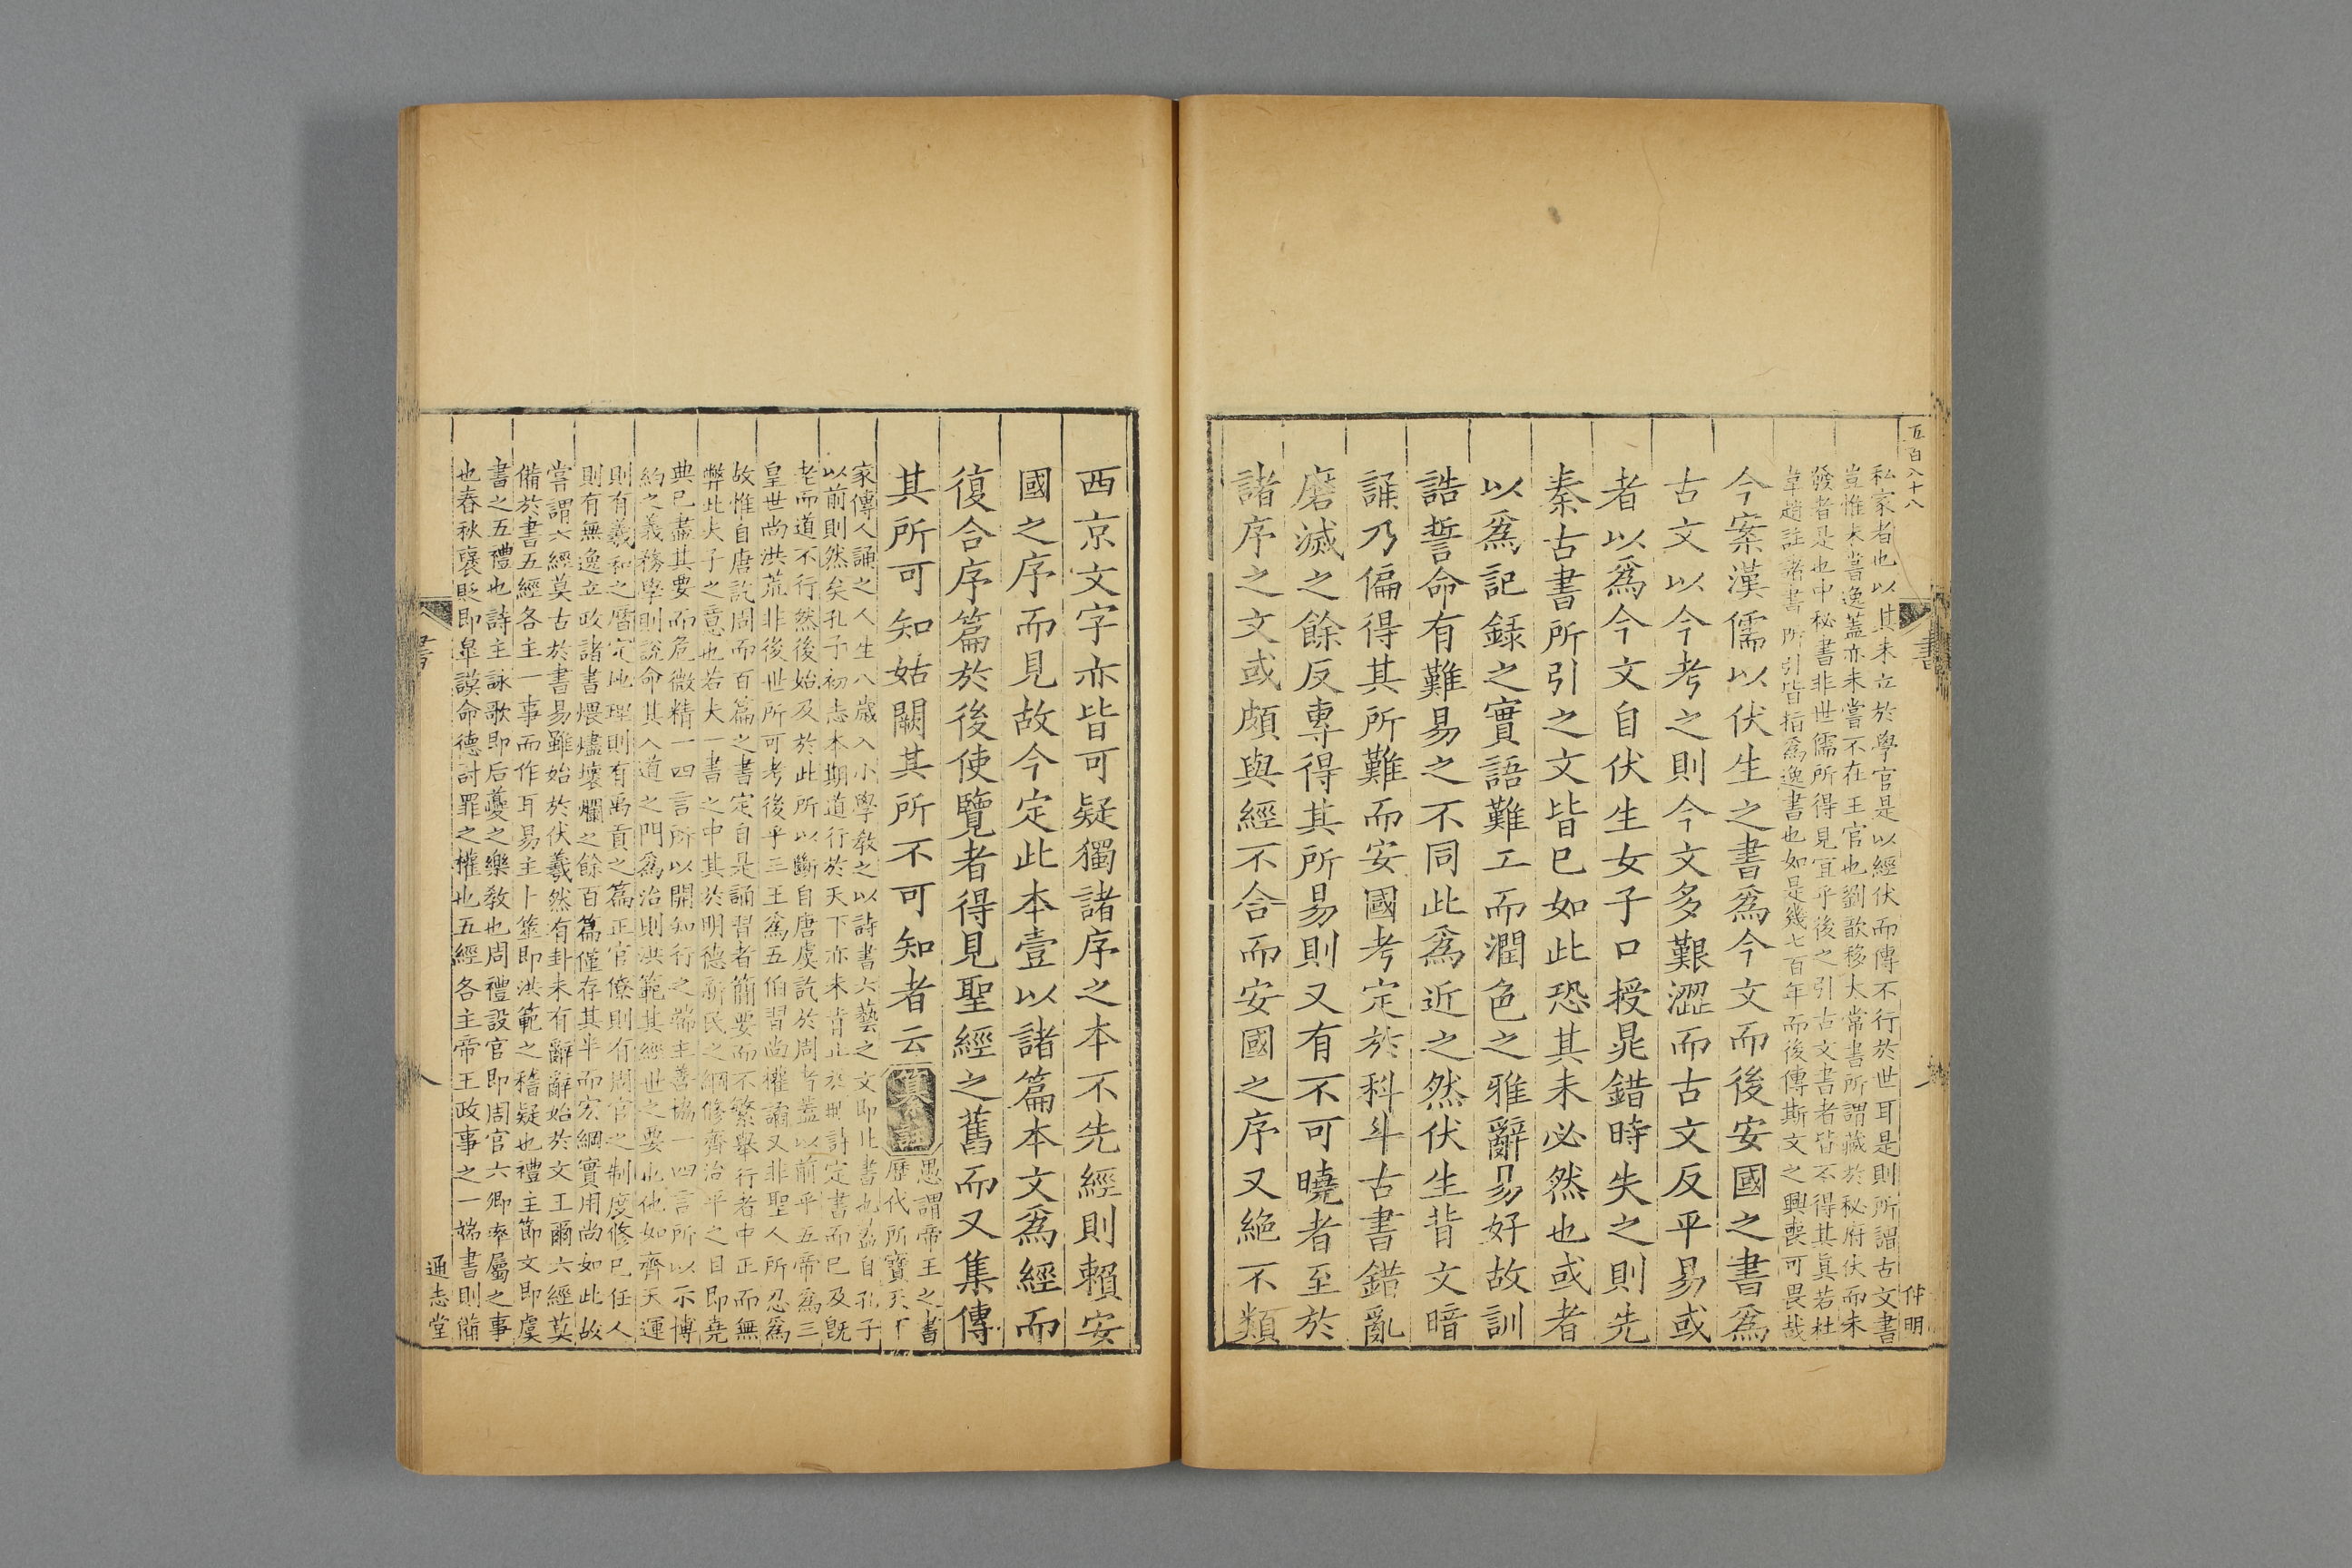 五百八十八
私家者也以其未立於學官是以經伏而傳不行於世耳是則所謂古文書
豈惟大書逸蓋亦未嘗不在王官也劉歆移太常書所謂藏於秘府伏而未
發者是也中秘書非世儒所得見宜乎後之引古文書者皆不得其真若杜
韋趙註諸書所引皆指爲逸書也如是幾七百年而後傳斯文之興喪可畏哉
今案漢儒以伏生之書爲今文而後安國之書爲
古文以今考之則今文多艱澀而古文反平易或
者以爲今文自伏生女子口授晁錯時失之則先
秦古書所引之文皆已如此恐其未必然也或者
以爲記録之實語難工而潤色之雅辭易好故訓
誥誓命有難易之不同此爲近之然伏生背文暗
誦乃偏得其所難而安國考定於科斗古書錯亂
磨滅之餘反專得其所易則又有不可曉者至於
諸序之文或頗與經不合而安國之序又絶不類
書
仲明
西京文字亦皆可疑獨諸序之本不先經則賴安
國之序而見故今定此本壹以諸篇本文爲經而
復合序篇於後使覽者得見聖經之舊而又集傳
其所可知姑闕其所不可知者云 纂註 愚謂帝王之書
歷代所寶天下
家傳人誦之人生八歲入小學教之以詩書六藝之文即此書也蓋自孔子
以前則然矣孔子初志本期道行於天下亦未肯止於刪詩定書而已及旣
老而道不行然後始及於此所以斷自唐虞訖於周者蓋以前乎五帝爲三
皇世尚洪荒非後世所可考後乎三王爲五伯習尚權譎又非聖人所忍爲
故惟自唐訖周而百篇之書定自是誦習者簡要而不繁舉行者中正而無
弊此夫子之意也若夫一書之中其於明德新民之綱修齊治平之目即堯
典已盡其要而危微精一四言所以開知行之端主善協一四言所以示博
約之義務學則說命其入道之門爲治則洪範其經世之要也他如齊天運
則有羲和之曆定地理則有禹貢之篇正官僚則有周官之制度修已任人
則有無逸立政諸書煨燼壞爛之餘百篇僅存其半而宏綱實用尚如此故
嘗謂六經莫古於書易雖始於伏羲然有卦未有辭辭始於文王爾六經莫
備於書五經各主一事而作耳易主卜筮即洪範之稽疑也禮主節文即虞
書之五禮也詩主詠歌即后夔之樂教也周禮設官即周官六卿率屬之事
也春秋襃貶即臯謨命德討罪之權也五經各主帝王政事之一端書則備
書
通志堂